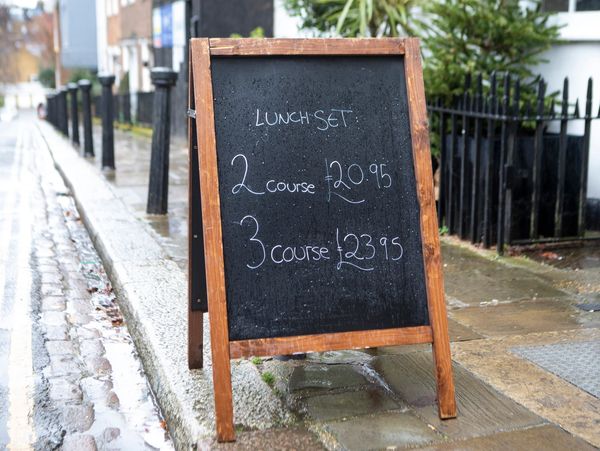 LUNCH SET
2 course £20.95
3 course £23.95